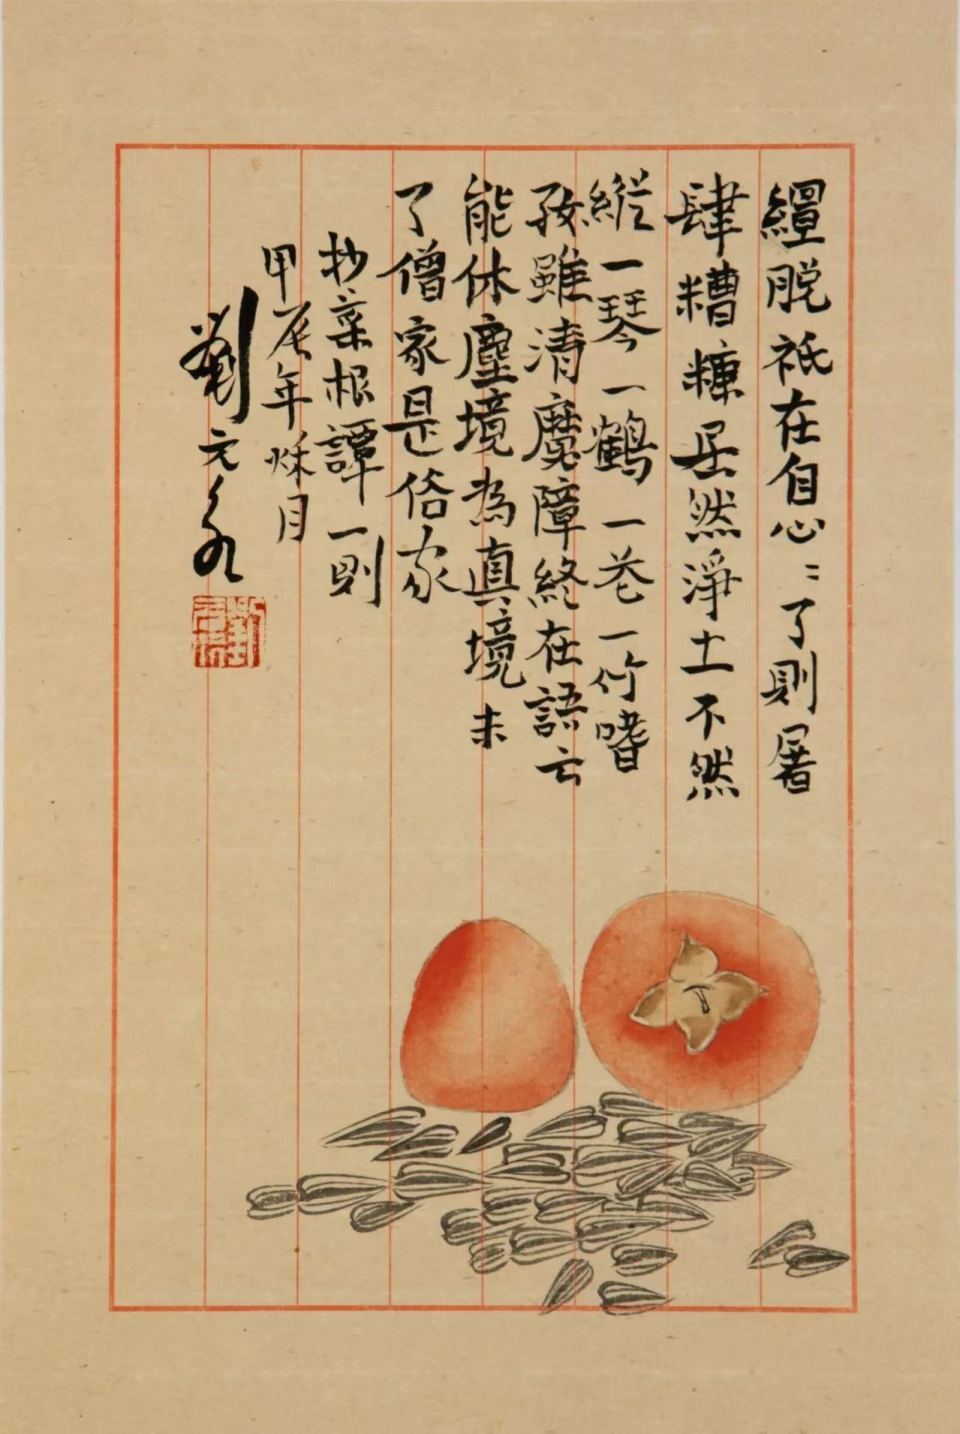 纏脫祇在自心〻了則屠
肆糟糠居然淨土不然
縱一琴一鶴一花一竹嗜
好雖清魔障終在語云
能休塵境為真境未
了僧家是俗家
抄菜根譚一則
甲辰年秌月
劉元